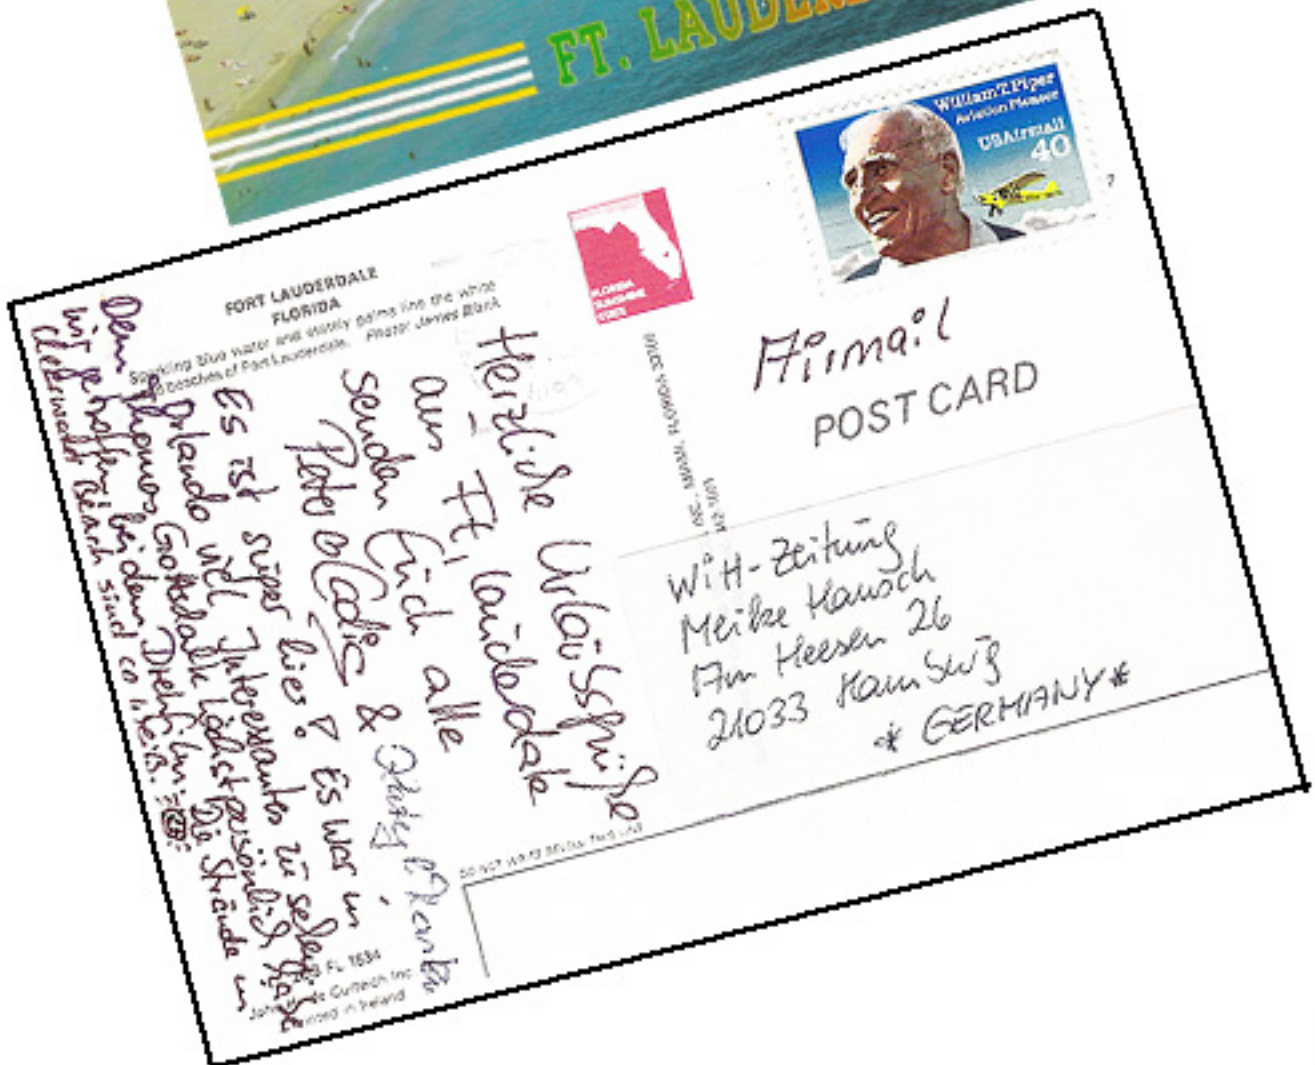 FT. LAUDER
William T. Piper
Aviation Pioneer
USAirmail
40
FLORIDA
SUNSHINE
STATE
FORT LAUDERDALE
FLORIDA
Sparkling blue water and stately palms line the white
beaches of Fort Lauderdale. Photo: James Blank
Airmail
POST CARD
MIAMI, FLORIDA
WiH-Zeitung
Meike Hansch
Am Heesen 26
21033 Hamburg
* GERMANY *
Herzliche Urlaubsgrüße
aus Ft. Lauderdale
senden Euch alle
Peter &
Es ist super hier! Es war in
Orlando viel Interessantes zu sehen.
Thomas Gottschalk höchstpersönlich habe
Denn
wir getroffen bei dem Drehfilm. Die Strände in
Clearwater Beach sind so heiß.
DO NOT WRITE BELOW THIS LINE
FL 1534
John Curteich Inc
Printed in Ireland